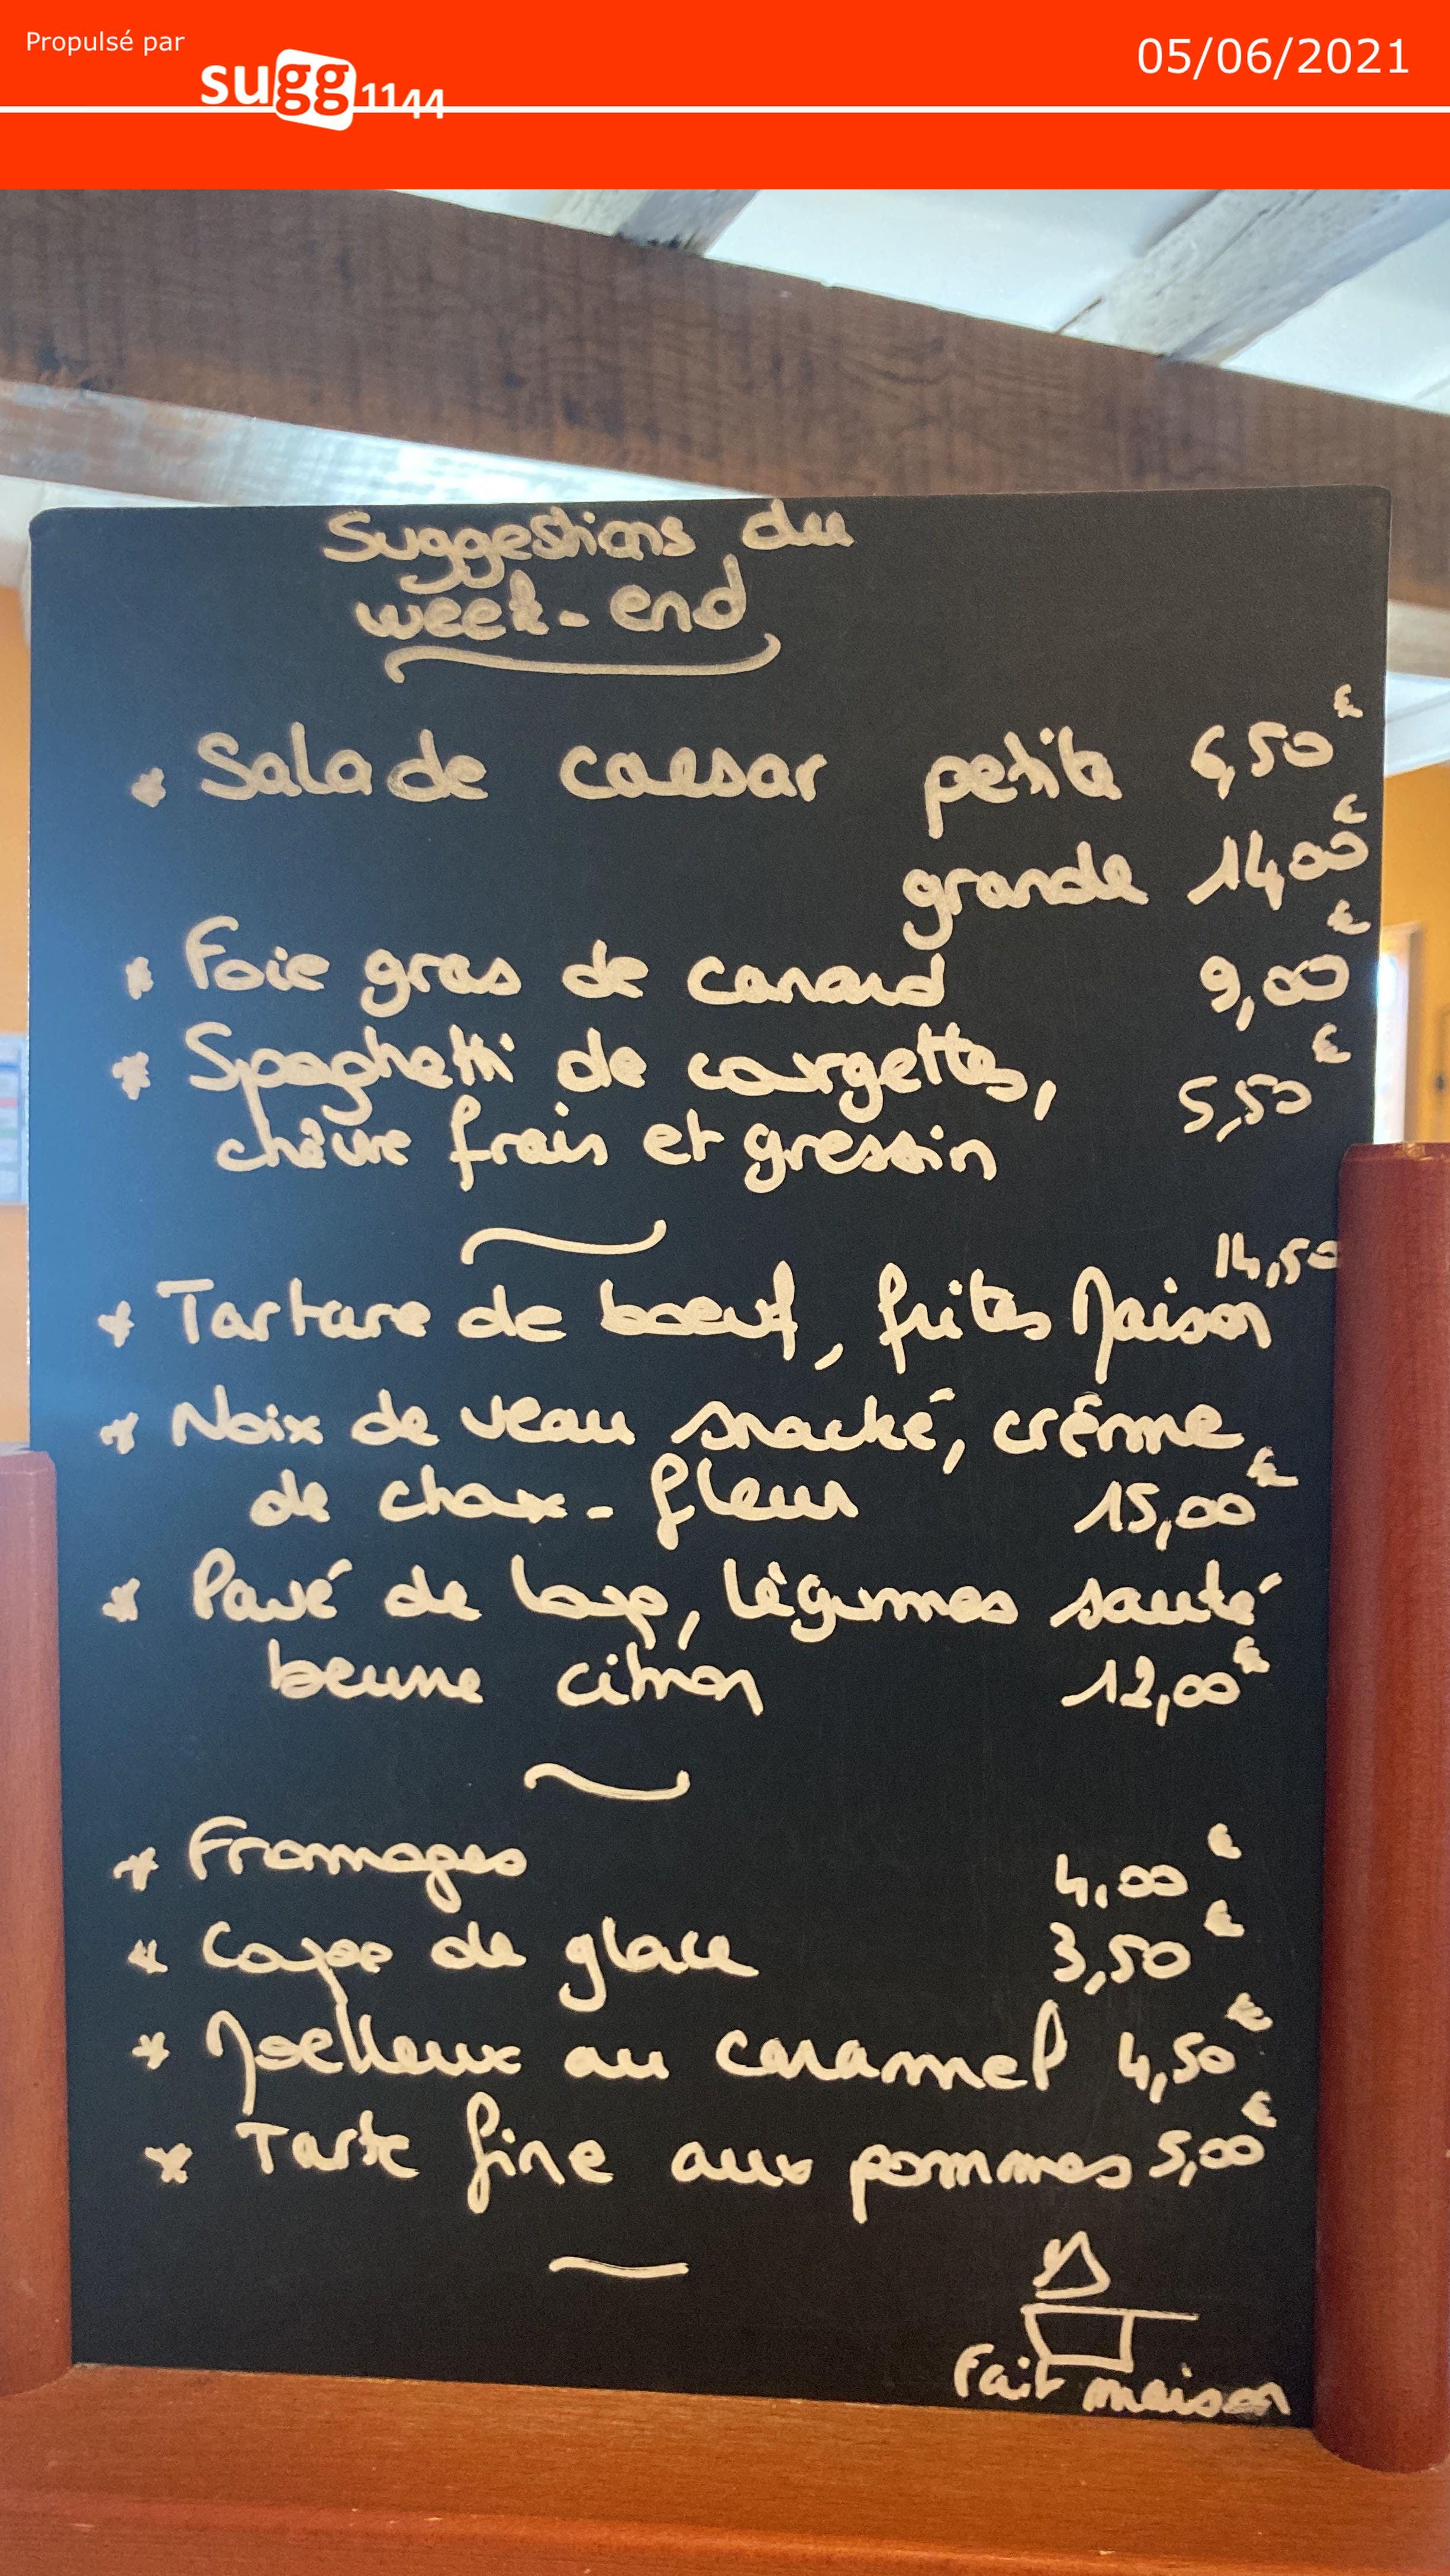 Propulsé par
sugg1144
05/06/2021
Suggestions du
week-end
* Salade caesar petite 6,50€
grande 14,00€
* Foie gras de canard 9,00€
* Spaghetti de courgettes, 5,50€
chèvre frais et gressin
14,50
* Tartare de boeuf, frites Maison
* Noix de veau snacké, crème
de choux-fleur 15,00€
* Pavé de loup, légumes sauté
beurre citron 12,00€
* Fromages 4,00€
* Coupe de glace 3,50€
* Moelleux au caramel 4,50€
* Tarte fine aux pommes 5,00€
Fait maison